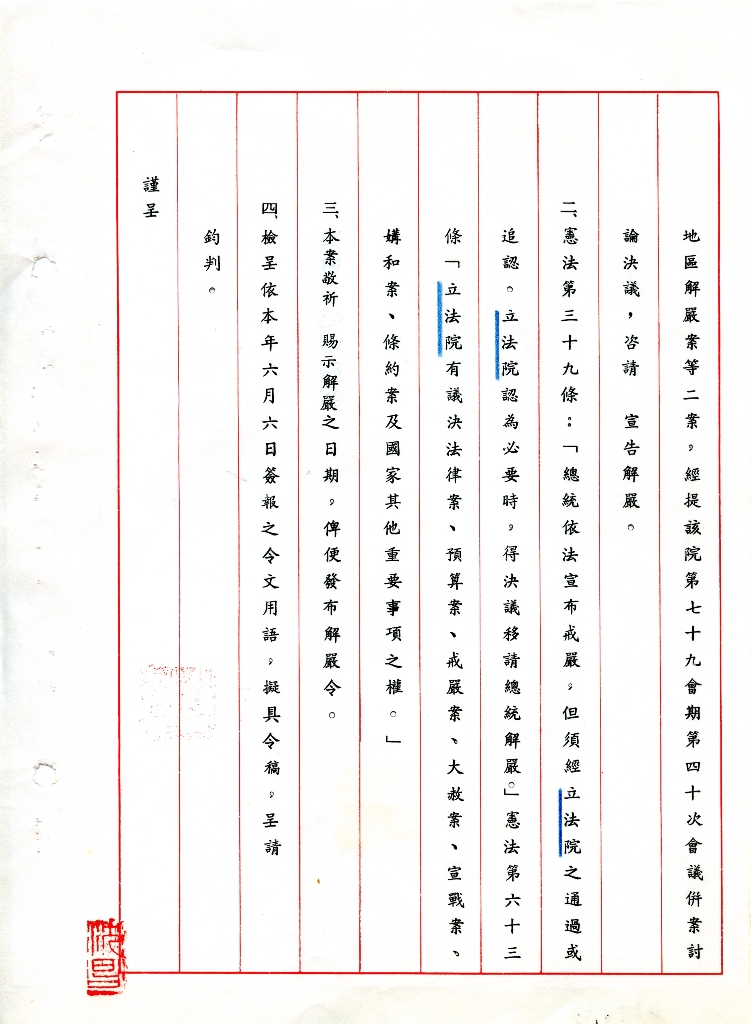 地區解嚴案等二案，經提該院第七十九會期第四十次會議併案討
論決議，咨請　宣告解嚴。
二、憲法第三十九條：「總統依法宣布戒嚴，但須經立法院之通過或
追認。立法院認為必要時，得決議移請總統解嚴。」憲法第六十三
條「立法院有議決法律案、預算案、戒嚴案、大赦案、宣戰案、
媾和案、條約案及國家其他重要事項之權。」
三、本案敬祈　賜示解嚴之日期，俾便發布解嚴令。
四、檢呈依本年六月六日簽報之令文用語，擬具令稿，呈請
鈞判。
謹呈